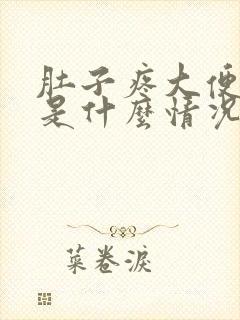 肚子疼大便
是什麼情況
菜卷淚